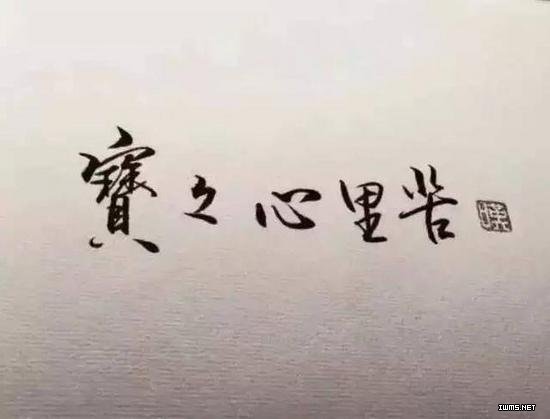 寶々心里苦
IWMS.NET